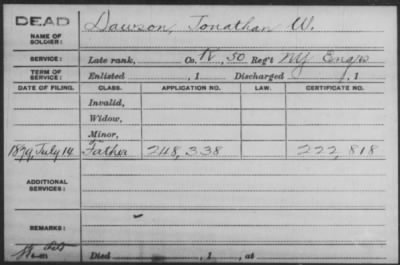 DEAD
NAME OF SOLDIER: Dawson, Jonathan W.
SERVICE: Late rank, Co. K, 50 Reg't NY Engrs
TERM OF SERVICE: Enlisted , 1 Discharged , 1
DATE OF FILING. CLASS. APPLICATION NO. LAW. CERTIFICATE NO.
Invalid,
Widow,
Minor,
1879, July 14 Father 248,338 222,818
ADDITIONAL SERVICES:
REMARKS:
Died , 1 , at